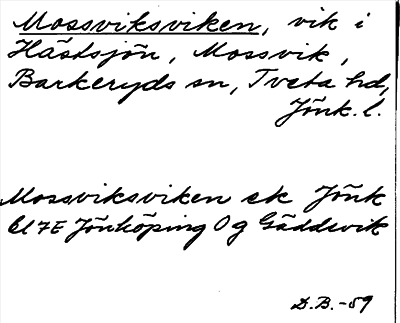 Mossviksviken, vik i
Hästsjön, Mossvik,
Barkeryds sn, Tveta hd,
Jönk. l.
Mossviksviken ek Jönk
bl 7E Jönköping Og Gäddvik
D.B.-59